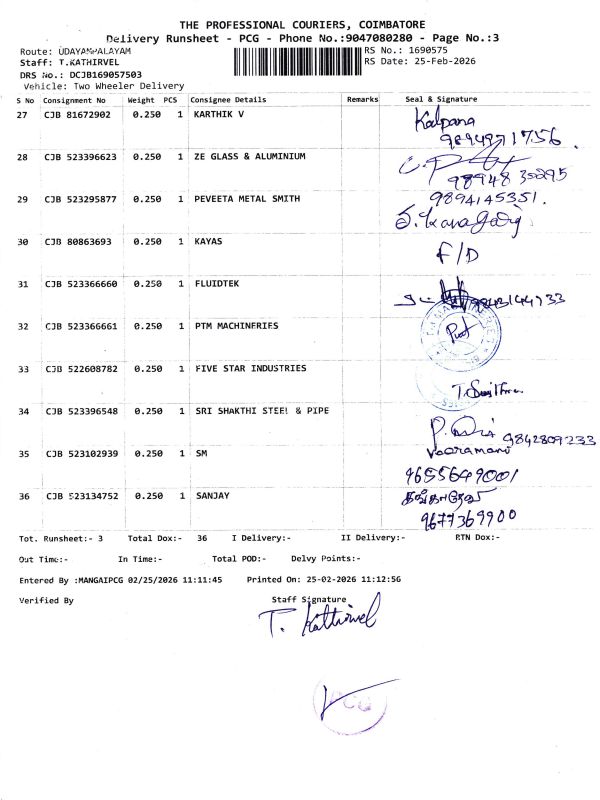 THE PROFESSIONAL COURIERS, COIMBATORE
Delivery Runsheet - PCG - Phone No.:9047080280 - Page No.:3
Route: UDAYAMPALAYAM
RS No.: 1690575
Staff: T.KATHIRVEL
RS Date: 25-Feb-2026
DRS No.: DCJB169057503
Vehicle: Two Wheeler Delivery
S No Consignment No Weight PCS Consignee Details Remarks Seal & Signature
27 CJB 81672902 0.250 1 KARTHIK V Kalpana
28 CJB 523396623 0.250 1 ZE GLASS & ALUMINIUM
98948 35295
29 CJB 523295877 0.250 1 PEVEETA METAL SMITH 9894145351.
30 CJB 80863693 0.250 1 KAYAS F/D
31 CJB 523366660 0.250 1 FLUIDTEK
32 CJB 523366661 0.250 1 PTM MACHINERIES
33 CJB 522608782 0.250 1 FIVE STAR INDUSTRIES
34 CJB 523396548 0.250 1 SRI SHAKTHI STEEL & PIPE
9842809233
35 CJB 523102939 0.250 1 SM
9655649001
36 CJB 523134752 0.250 1 SANJAY
9677369900
Tot. Runsheet:- 3 Total Dox:- 36 I Delivery:- II Delivery:- RTN Dox:-
Out Time:- In Time:- Total POD:- Delvy Points:-
Entered By :MANGAIPCG 02/25/2026 11:11:45 Printed On: 25-02-2026 11:12:56
Verified By Staff Signature
T. Kathirvel
PCG